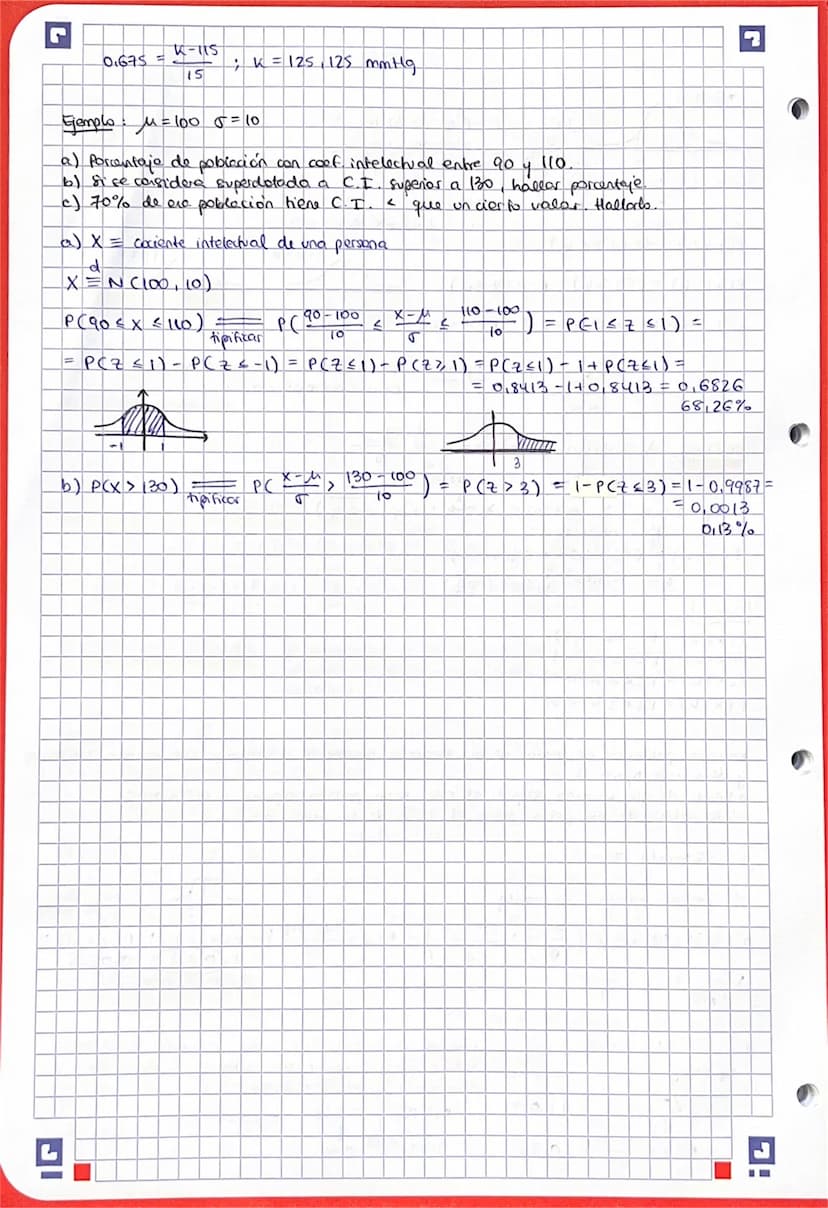 0,675 = K-115/15 ; K = 125,125 mmHg
Ejemplo: μ=100 σ=10
a) Porcentaje de población con coef. intelectual entre 90 y 110.
b) Si se considera superdotada a C.I. superior a 130, hallar porcentaje.
c) 70% de esa población tiene C.I. < que un cierto valor. Hallarlo.
a) X ≡ cociente intelectual de una persona
X ≡ᵈ N(100, 10)
P(90 ≤ X ≤ 110) == tipificar P(90-100/10 ≤ X-μ/σ ≤ 110-100/10) = P(-1 ≤ Z ≤ 1) =
= P(Z ≤ 1) - P(Z ≤ -1) = P(Z ≤ 1) - P(Z ≥ 1) = P(Z ≤ 1) - 1 + P(Z ≤ 1) =
= 0,8413 - 1 + 0,8413 = 0,6826
68,26%
-1 1
3
b) P(X > 130) == tipificar P(X-μ/σ > 130-100/10) = P(Z > 3) = 1 - P(Z ≤ 3) = 1 - 0,9987 =
= 0,0013
0,13%